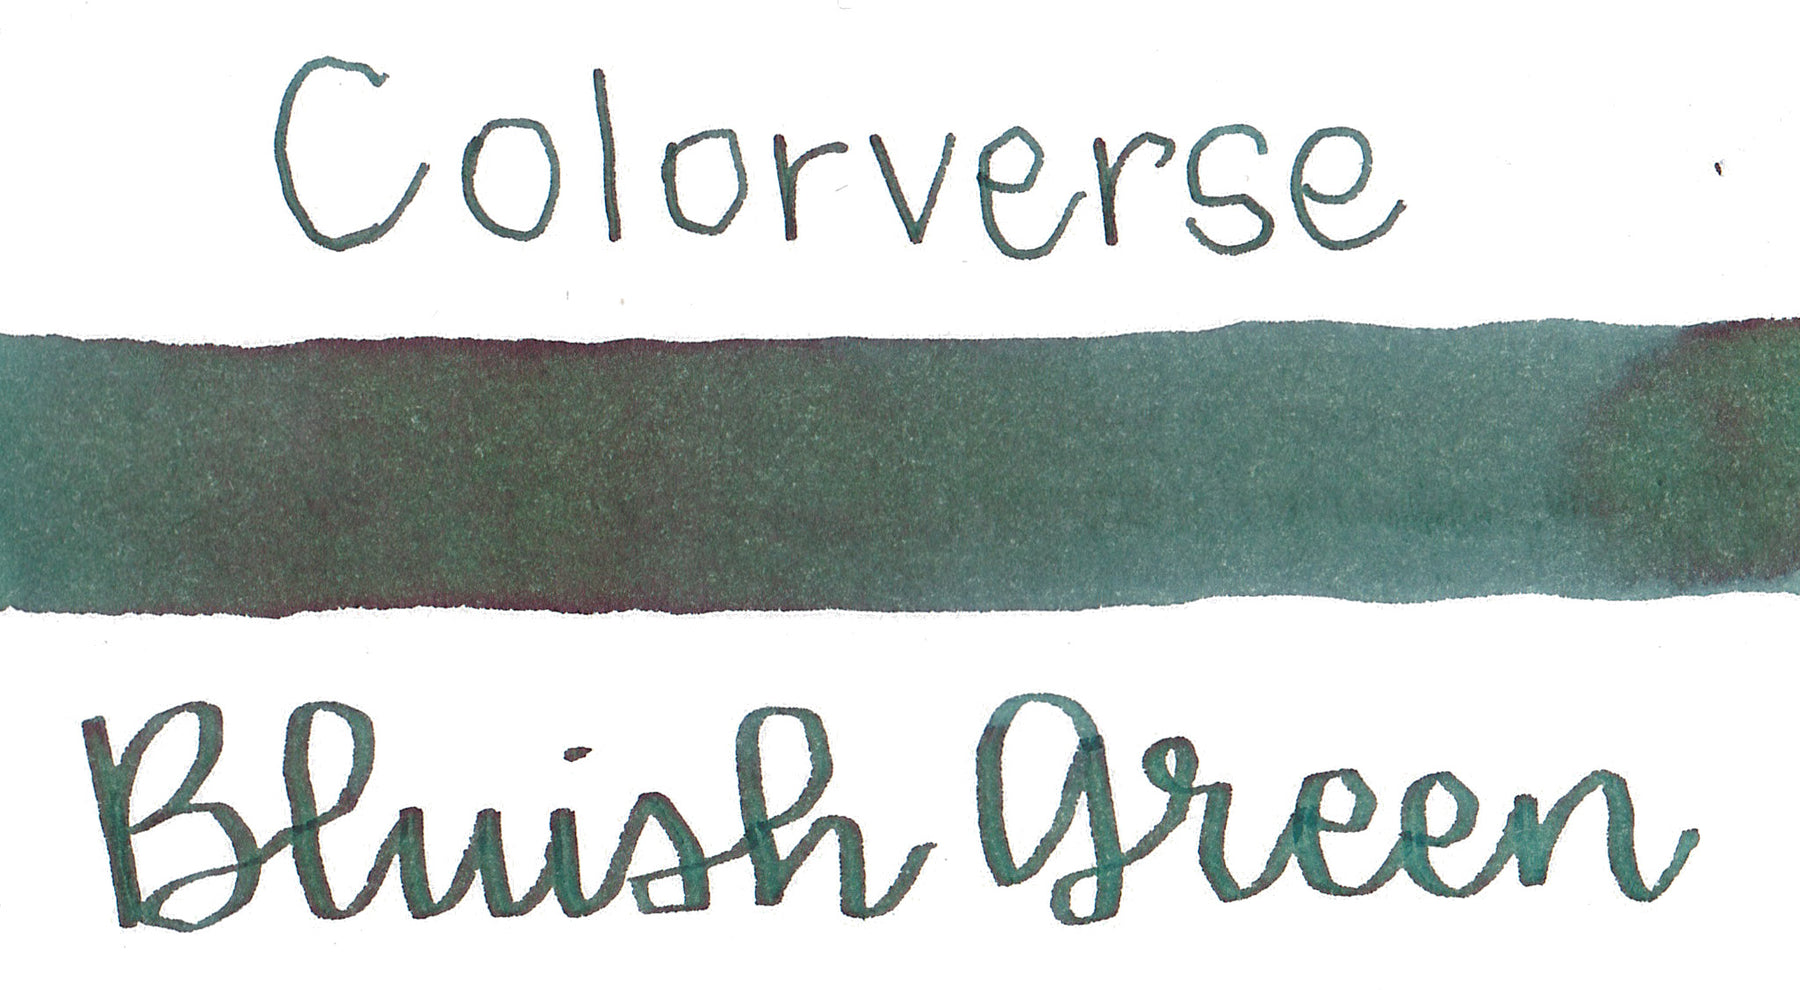 Colorverse
Bluish Green